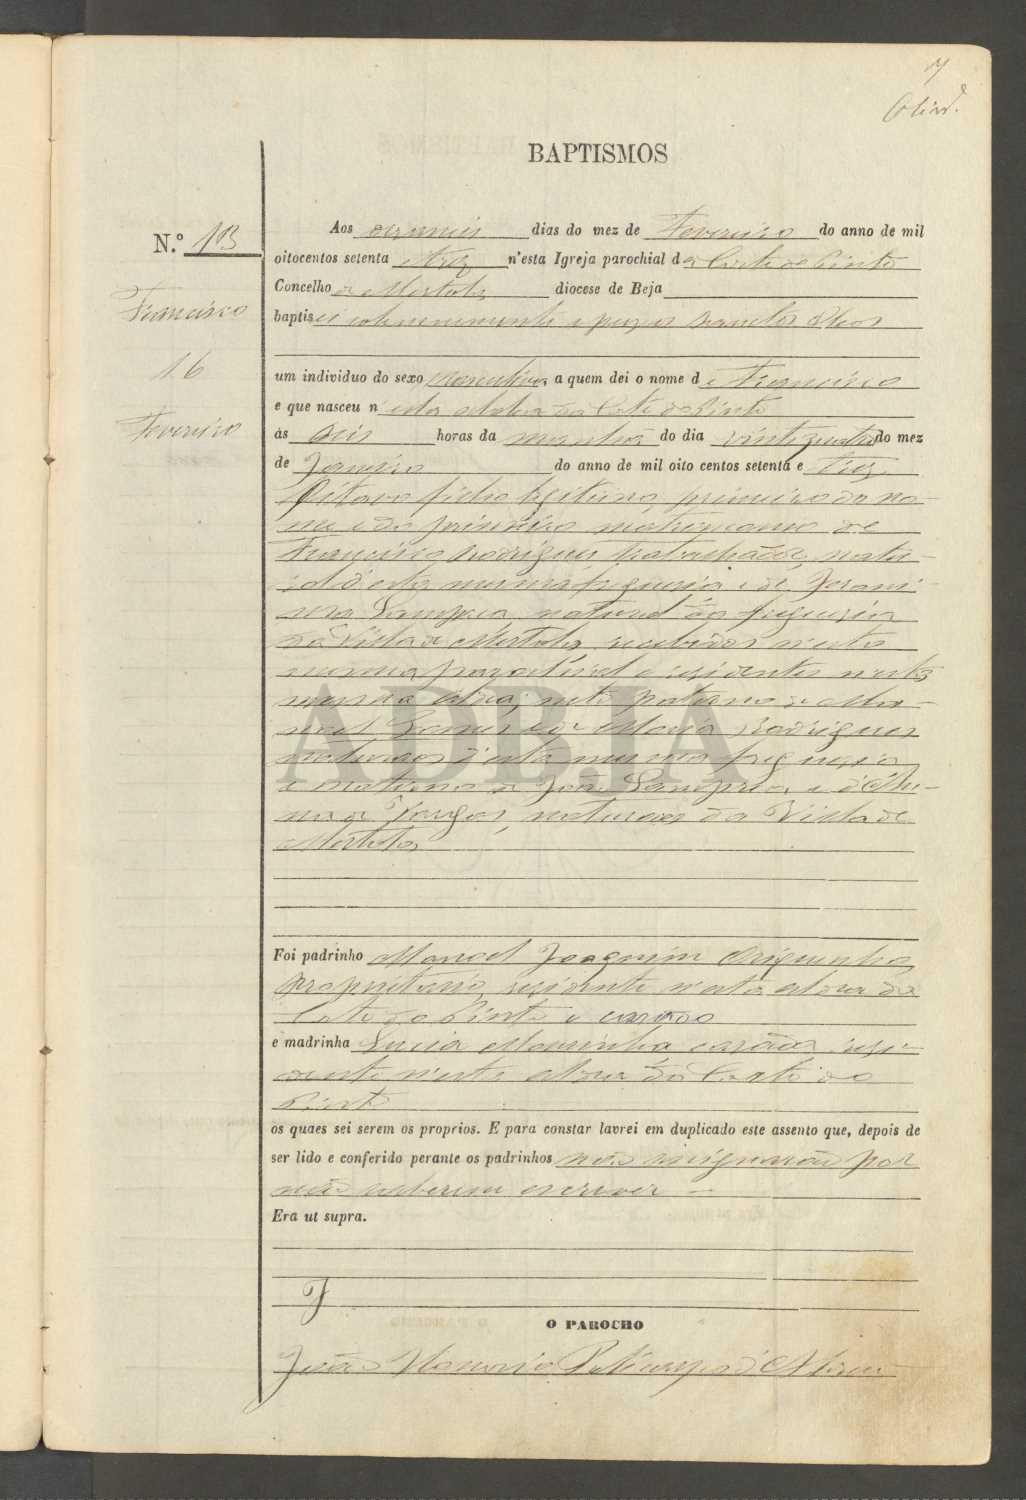 7
BAPTISMOS
N.º 13
Francisco
16
Fevereiro
Aos dezaseis dias do mez de Fevereiro do anno de mil
oitocentos setenta e trez n'esta Igreja parochial de Corte do Pinto
Concelho de Mertola diocese de Beja
baptisei solemnemente e puz os Santos Oleos
um individuo do sexo masculino a quem dei o nome de Francisco
e que nasceu n'esta aldea da Corte do Pinto
ás seis horas da manhã do dia vinte quatro do mez
de Janeiro do anno de mil oito centos setenta e trez
Oitavo filho legitimo, primeiro do no-
me e do primeiro matrimonio de
Francisco Rodrigues trabalhador, natu-
ral d'esta mesma freguesia e de Jeroni-
ma Sampaia natural da freguesia
da Villa de Mertola recebidos n'esta
mesma parochial e residentes n'esta
mesma aldea; neto paterno de Ma-
noel Gomes e de Maria Rodrigues
naturaes d'esta mesma freguesia
e materno de João Sampaio e d'An-
na naturaes da Villa de
Mertola
Foi padrinho Manoel Joaquim
proprietario, residente n'esta aldea da
Corte do Pinto e casado
e madrinha Luzia casada resi-
dente n'esta aldea da Corte do
Pinto
os quaes sei serem os proprios. E para constar lavrei em duplicado este assento que, depois de
ser lido e conferido perante os padrinhos não assignarão por
não saberem escrever
Era ut supra.
O PAROCHO
João
ADBJA